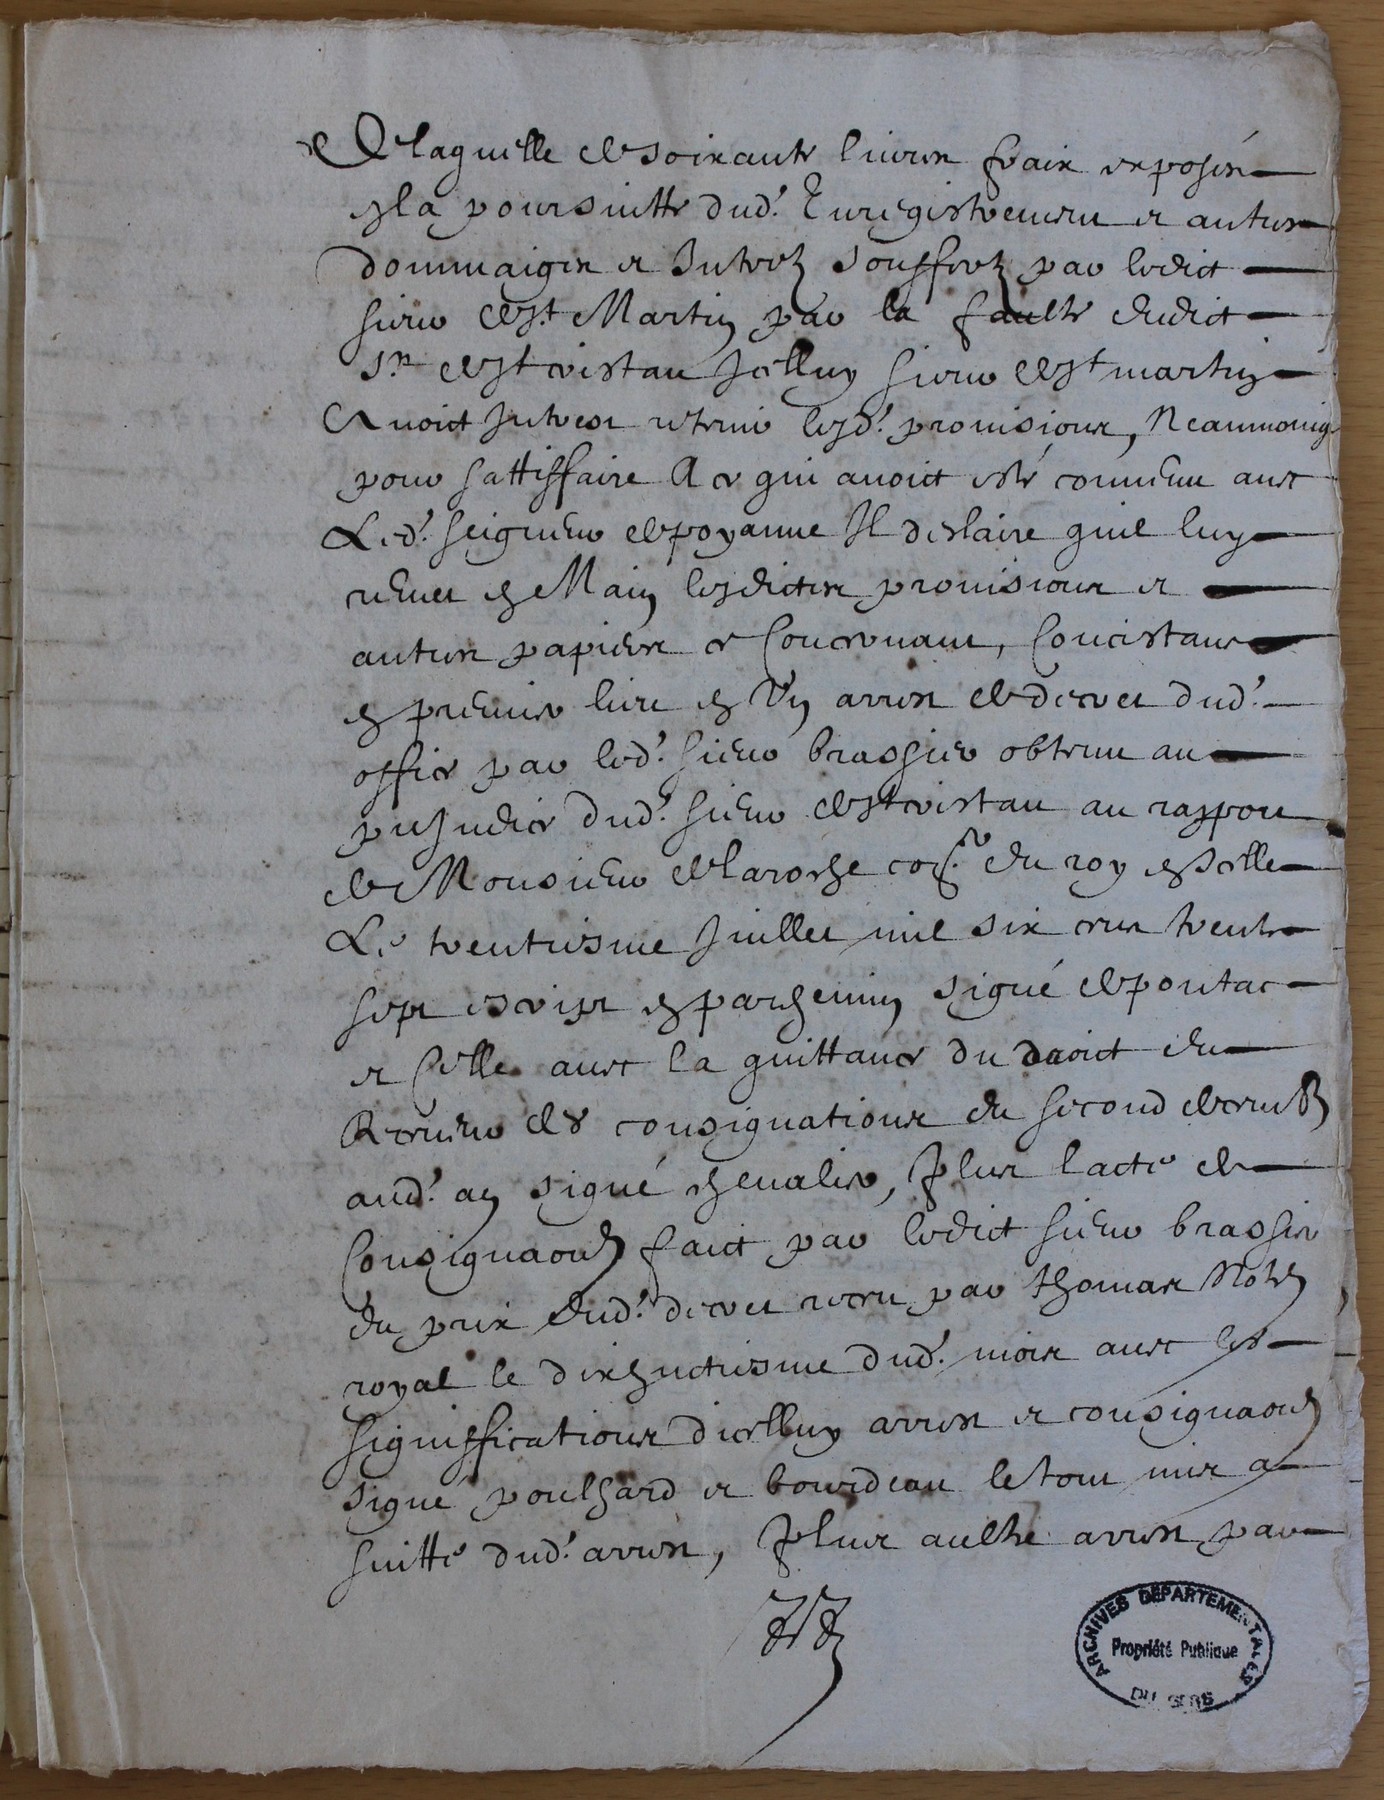 De laquelle de soixante livres fraix exposés
en la poursuitte dud. Enregistrement et autres
dommaiges et Interetz souffretz par ledict
sieur de St. Martin par la faulte dudict
Sr. de St cristau Icelluy sieur de St martin
Avoict Interest retenir lesd. provisions, Neanmoings
pour sattisffaire A ce qui avoict esté convenu avec
Led. seigneur de poyanne Il declaire quil luy
remet en Main lesdictes provisions et
autres papiers ce Concernant, Concistans
en premier lieu en Un arrest de decret dud.
office par led. sieur brassier obtenu au
prejudice dud. sieur de St cristau au rapport
de Monsieur de laroche conr. du roy en Icelle
Le trentiesme Juillet mil six cens trente
sept escript en parchemin signé de pontac
et sellé avec la quittance du droict du
Receveur des consignations du second decembre
aud. an signé chevalier, Plus l'acte de
Consignaon faict par ledict sieur brassier
du prix dud. decret receu par thomas Notre
royal le dixhuctiesme dud. mois avec les
signiffications dicelluy arrest et consignaon
signé poulhard et bourdeau le tout mis a
suitte dud. arrest, Plus aultre arrest par
ARCHIVES DÉPARTEMENTALES
Propriété Publique
DU GERS